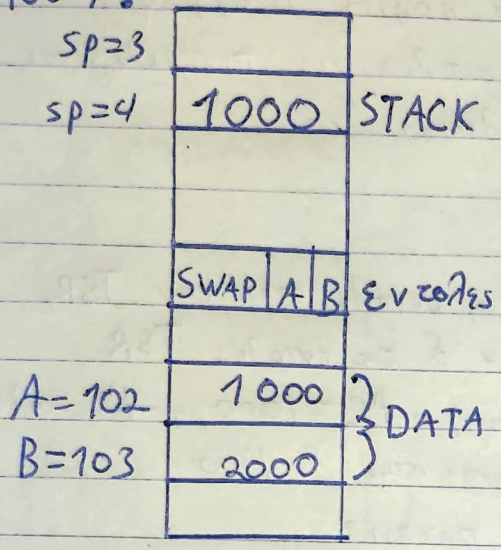 sp=3
sp=4 1000 STACK
SWAP A B εντολες
A=102 1000
DATA
B=103 2000